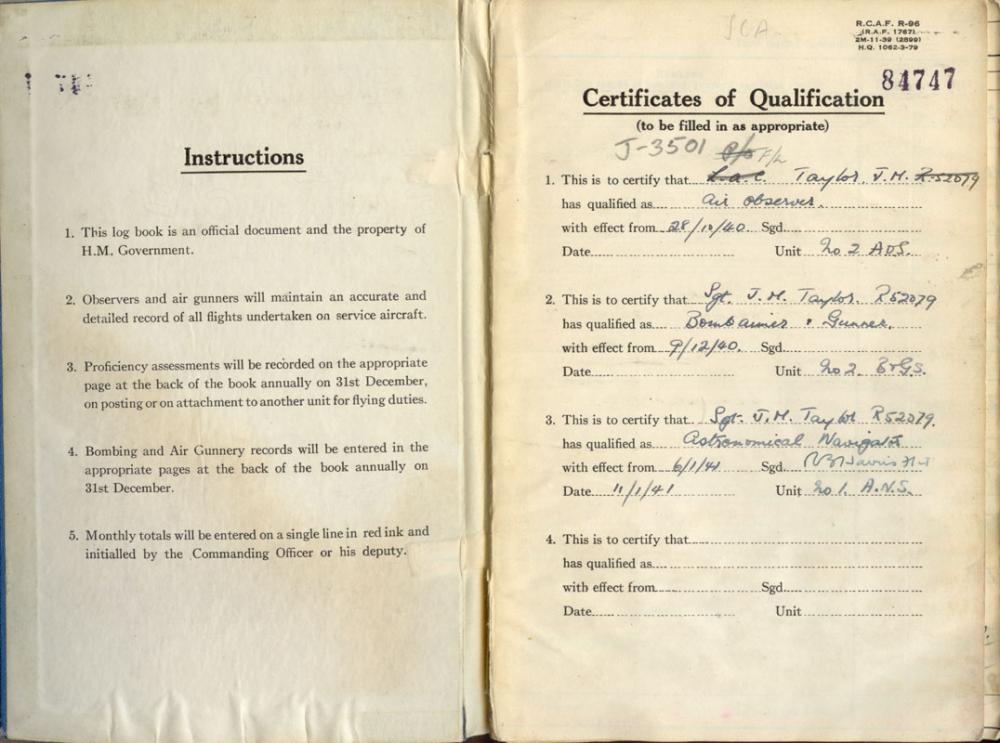 Instructions
1. This log book is an official document and the property of
H.M. Government.
2. Observers and air gunners will maintain an accurate and
detailed record of all flights undertaken on service aircraft.
3. Proficiency assessments will be recorded on the appropriate
page at the back of the book annually on 31st December,
on posting or on attachment to another unit for flying duties.
4. Bombing and Air Gunnery records will be entered in the
appropriate pages at the back of the book annually on
31st December.
5. Monthly totals will be entered on a single line in red ink and
initialled by the Commanding Officer or his deputy.
R.C.A.F. R-96
(R.A.F. 1767)
2M-11-39 (2899)
H.Q. 1062-3-79
84747
Certificates of Qualification
(to be filled in as appropriate)
J-3501 P/O F/L
1. This is to certify that L.a.c. Taylor, J.M. R52079
has qualified as Air Observer.
with effect from 28/10/40 Sgd.
Date Unit No 2 AOS.
2. This is to certify that Sgt. J.M. Taylor. R52079
has qualified as Bombaimer & Gunner.
with effect from 9/12/40. Sgd.
Date Unit No 2. B&GS.
3. This is to certify that Sgt. J.M. Taylor R52079.
has qualified as Astronomical Navigator
with effect from 6/1/41 Sgd.
Date 11/1/41 Unit No 1. A.N.S.
4. This is to certify that
has qualified as
with effect from Sgd.
Date Unit